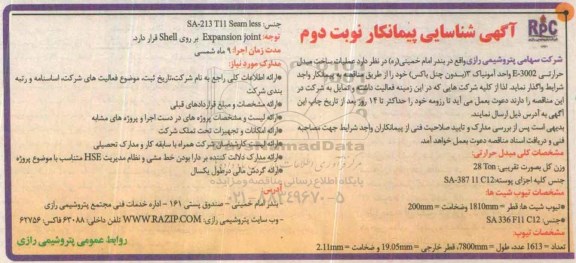 RPC
آگهی شناسایی پیمانکار نوبت دوم
شرکت سهامی پتروشیمی رازی واقع در بندر امام خمینی(ره) در نظر دارد عملیات ساخت مبدل
حرارتی E-3002 واحد آمونیاک ۳(بدون چنل باکس) خود را از طریق مناقصه به پیمانکار واجد
شرایط واگذار نماید. لذا از کلیه شرکت هایی که در این زمینه فعالیت داشته و تمایل به شرکت در
این مناقصه را دارند دعوت بعمل می آید تا رزومه خود را حداکثر تا ۱۴ روز بعد از تاریخ چاپ این
آگهی به آدرس ذیل ارسال نمایند.
بدیهی است پس از بررسی مدارک و تایید صلاحیت فنی از پیمانکاران واجد شرایط جهت مصاحبه
فنی و دریافت اسناد مناقصه دعوت بعمل خواهد آمد.
مشخصات کلی مبدل حرارتی:
وزن کل بصورت تقریبی: 28 Ton
جنس کلیه اجزای پوسته: SA-387 11 C12
مشخصات تیوب شیت ها:
*تیوب شیت ها: قطر = 1810mm وضخامت = 200mm
*جنس: SA 336 F11 C12
مشخصات تیوب:
تعداد = 1613 عدد، طول = 7800mm، قطر خارجی = 19.05mm و ضخامت = 2.11mm
جنس: SA-213 T11 Seam less
توجه: Expansion joint بر روی Shell قرار دارد.
مدت زمان اجرا: ۹ ماه شمسی
مدارک مورد نیاز:
*ارائه اطلاعات کلی راجع به نام شرکت،تاریخ ثبت، موضوع فعالیت های شرکت، اساسنامه و رتبه
بندی شرکت
*ارائه مشخصات و مبلغ قراردادهای قبلی
*ارائه لیست و مشخصات پروژه های در دست اجرا و پروژه های مشابه
*ارائه امکانات و تجهیزات تحت تملک شرکت
*ارائه لیست کارشناسان شرکت همراه با سابقه کار و مدارک تحصیلی
*ارائه مدارک دلالت کننده بر دارا بودن خط مشی و نظام مدیریت HSE متناسب با موضوع پروژه
*ارائه گردش مالی درطول یکسال
آدرس:
بندر امام خمینی - صندوق پستی ۱۶۱ - اداره خدمات فنی مجتمع پتروشیمی رازی
- وب سایت پتروشیمی رازی: WWW.RAZIP.COM تلفن داخلی: ۶۳۰۸۸ فاکس: ۶۲۷۵۶
روابط عمومی پتروشیمی رازی